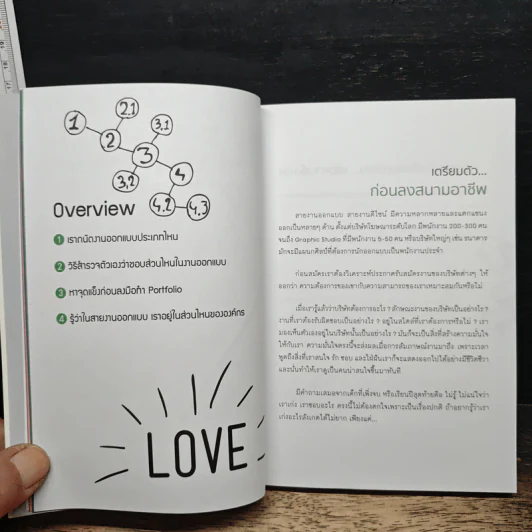 1
2.1
2
3.1
3
3.2
4
4.2
4.3
Overview
1 เราถนัดงานออกแบบประเภทไหน
2 วิธีสำรวจตัวเองว่าชอบส่วนไหนในงานออกแบบ
3 หาจุดแข็งก่อนลงมือทำ Portfolio
4 รู้ว่าในสายงานออกแบบ เราอยู่ในส่วนไหนขององค์กร
LOVE
เตรียมตัว...
ก่อนลงสนามอาชีพ
สายงานออกแบบ สายงานดีไซน์ มีความหลากหลายและแตกแขนง
ออกเป็นหลายๆ ด้าน ตั้งแต่บริษัทโฆษณาระดับโลก มีพนักงาน 200-300 คน
จนถึง Graphic Studio ที่มีพนักงาน 5-50 คน หรือบริษัทใหญ่ๆ เช่น ธนาคาร
มักจะมีแผนกศิลป์ที่ต้องการนักออกแบบเป็นพนักงานประจำ
ก่อนสมัครเราต้องวิเคราะห์ประกาศรับสมัครงานของบริษัทต่างๆ ให้
ออกว่า ความต้องการของเขากับความสามารถของเราเหมาะสมกันหรือไม่
เมื่อเรารู้แล้วว่าบริษัทต้องการอะไร ? ลักษณะงานของบริษัทเป็นอย่างไร ?
งานที่เราต้องรับผิดชอบเป็นอย่างไร ? อยู่ในสไตล์ที่เราต้องการหรือไม่ ? เรา
มองเห็นตัวเองอยู่ในบริษัทนั้นเป็นอย่างไร ? มันก็จะเป็นสิ่งที่สร้างความมั่นใจ
ให้กับเรา ความมั่นใจตรงนี้จะส่งผลเมื่อการสัมภาษณ์งานมาถึง เพราะเวลา
พูดถึงสิ่งที่เราสนใจ รัก ชอบ และใฝ่ฝันเราก็จะแสดงออกไปได้อย่างมีชีวิตชีวา
และนั่นทำให้เราดูเป็นคนน่าสนใจขึ้นมาทันที
มีคำถามเสมอจากเด็กที่เพิ่งจบ หรือเรียนปีสุดท้ายคือ ไม่รู้ ไม่แน่ใจว่า
เราเก่ง เราชอบอะไร ตรงนี้ไม่ต้องตกใจเพราะเป็นเรื่องปกติ ถ้าอยากรู้ว่าเรา
เก่งอะไรสังเกตได้ไม่ยาก เพียงแค่...